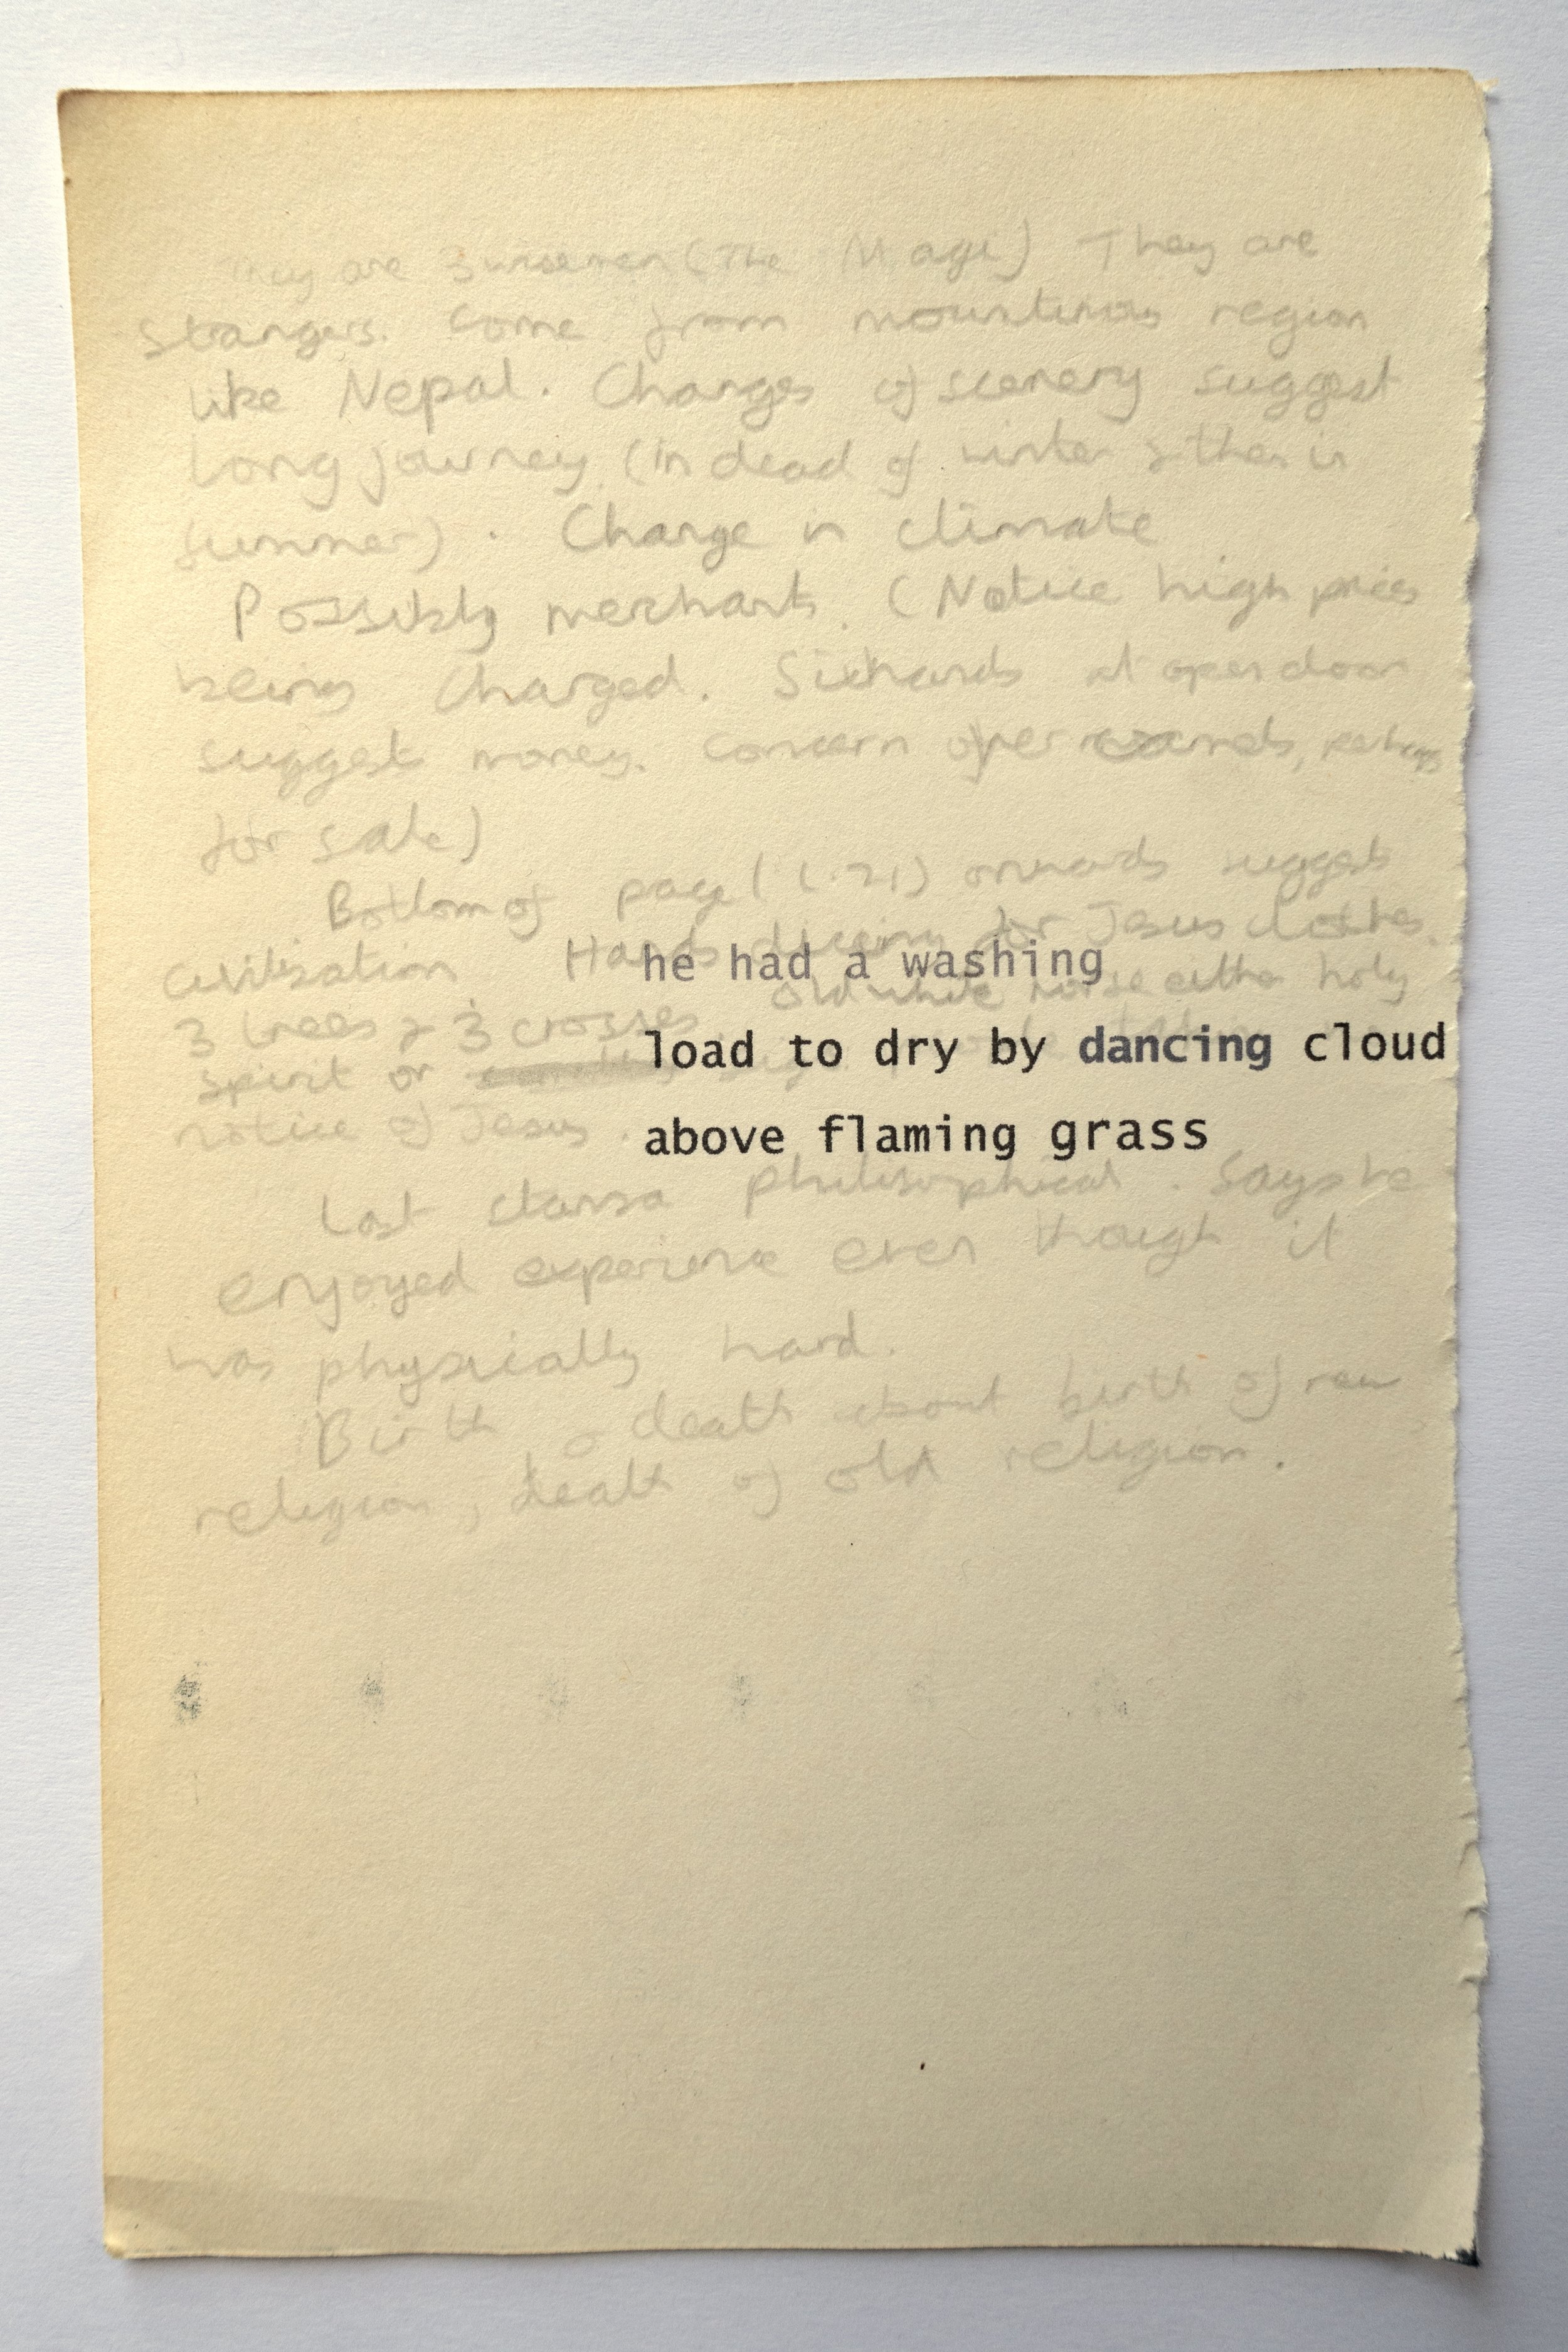 They are 3 wisemen (The Magi) They are
strangers. Come from mountinous region
like Nepal. Changes of scenery suggest
long journey (in dead of winter & then in
summer). Change in climate
Possibly merchants. (Notice high prices
being charged. Six hands at open door
suggest money. Concern over camels, perhaps
for sale)
Bottom of page (L.21) onwards suggests
civilisation Hands dicing for Jesus clothes.
3 trees & 3 crosses. Old white horse either holy
spirit or
notice of Jesus.
he had a washing
load to dry by dancing cloud
above flaming grass
Last stanza philosophical. Says he
enjoyed experience even though it
was physically hard.
Birth & death about birth of new
religion, death of old religion.